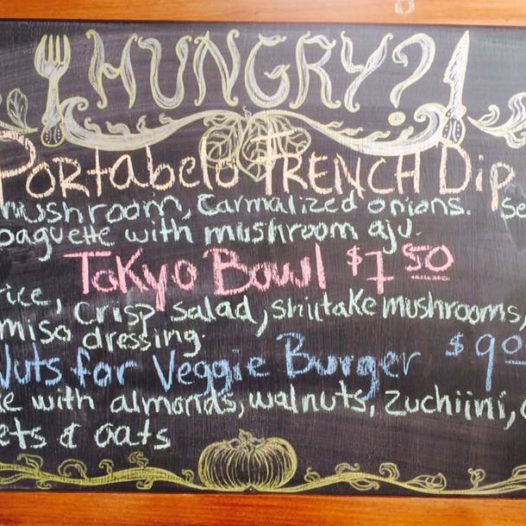 HUNGRY?
PORTABELO FRENCH DIP
mushroom, carmalized onions. Se
baguette with mushroom aju.
TOKYO BOWL $7.50
rice, crisp salad, shiitake mushrooms,
miso dressing
NUTS FOR VEGGIE BURGER $9.0
e with almonds, walnuts, zuchiini,
ets & oats